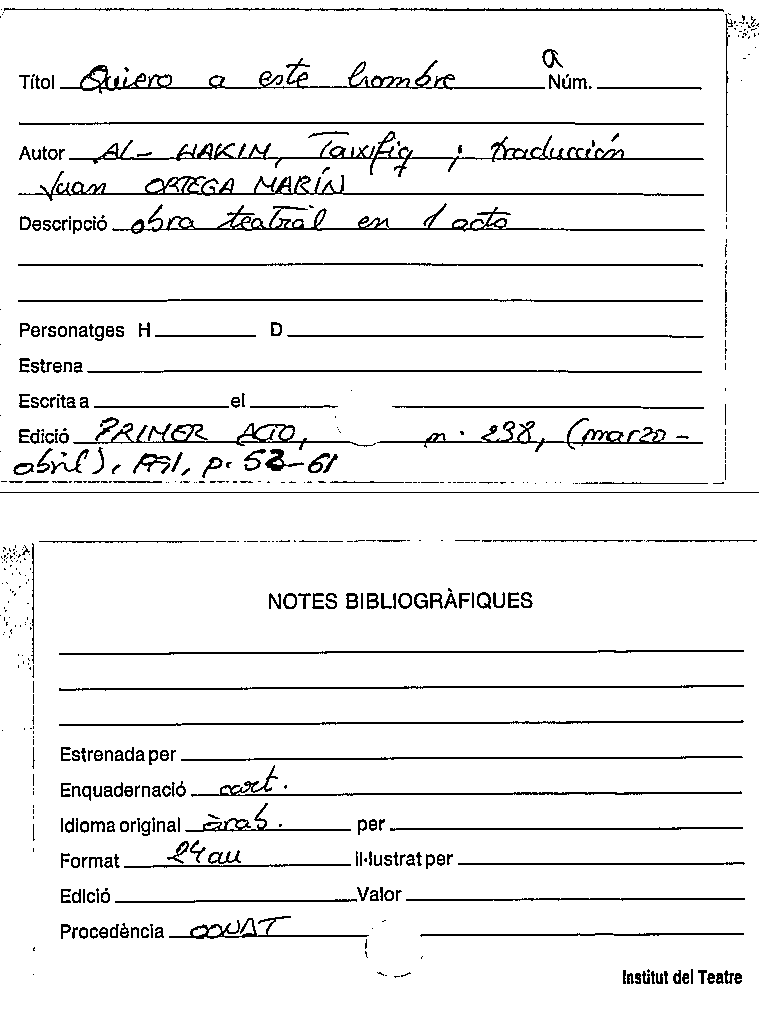 a
Títol Quiero a este hombre Núm.
Autor AL-HAKIM, Tawfiq ; traducción
Juan ORTEGA MARÍN
Descripció obra teatral en 1 acto
Personatges H D
Estrena
Escrita a el
Edició PRIMER ACTO, n. 238, (marzo-
abril), 1991, p. 52-61
NOTES BIBLIOGRÀFIQUES
Estrenada per
Enquadernació cart.
Idioma original àrab. per
Format 24 cm il·lustrat per
Edició Valor
Procedència DONAT
Institut del Teatre